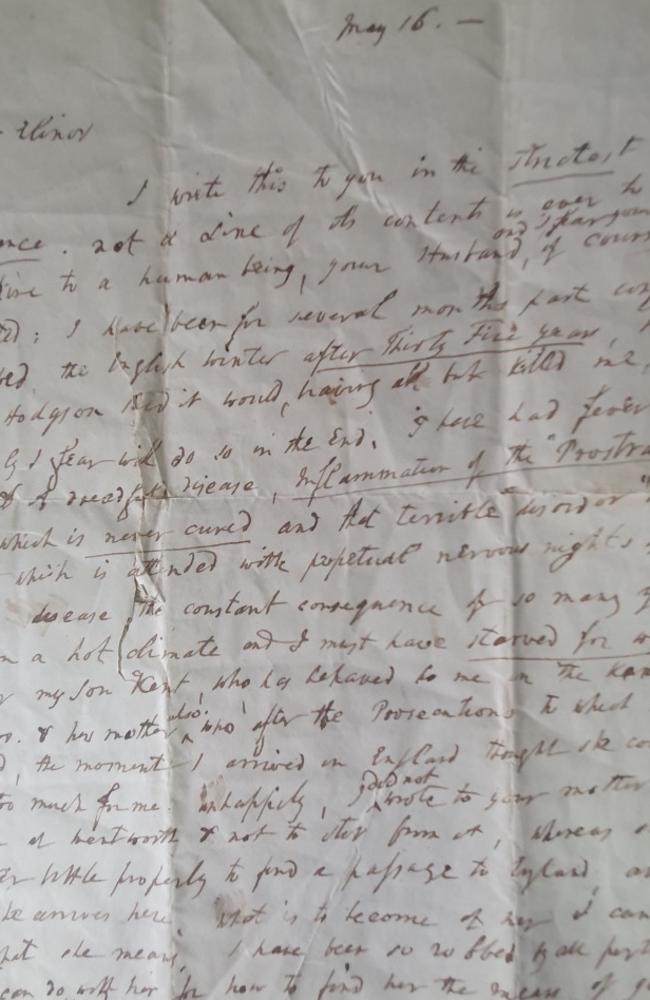 May 16. —
Elinor
I write this to you in the strictest
not a Line of its contents is ever to
and I fear your
to a human being, your Husband, of course
I have been for several months past
the English winter after Thirty Five years,
Hodgson said it would, having all but killed me,
I fear will do so in the End. I have had fever
dreadful disease, Inflammation of the "Prostra
which is never cured and that terrible disorder
which is attended with perpetual nervous nights
disease, the constant consequence of so many
a hot climate and I must have starved for
my son Kent, who has behaved to me in the
also.
& her mother who after the Prosecutions to which
the moment I arrived in England thought she
did not
too much for me. Unhappily, I wrote to your mother
at Wentworth & not to stir from it, whereas
little property to find a passage to England,
he arrives here, what is to become of her I can
she means, I have been so robbed by all
can do with her for how to find her the means of